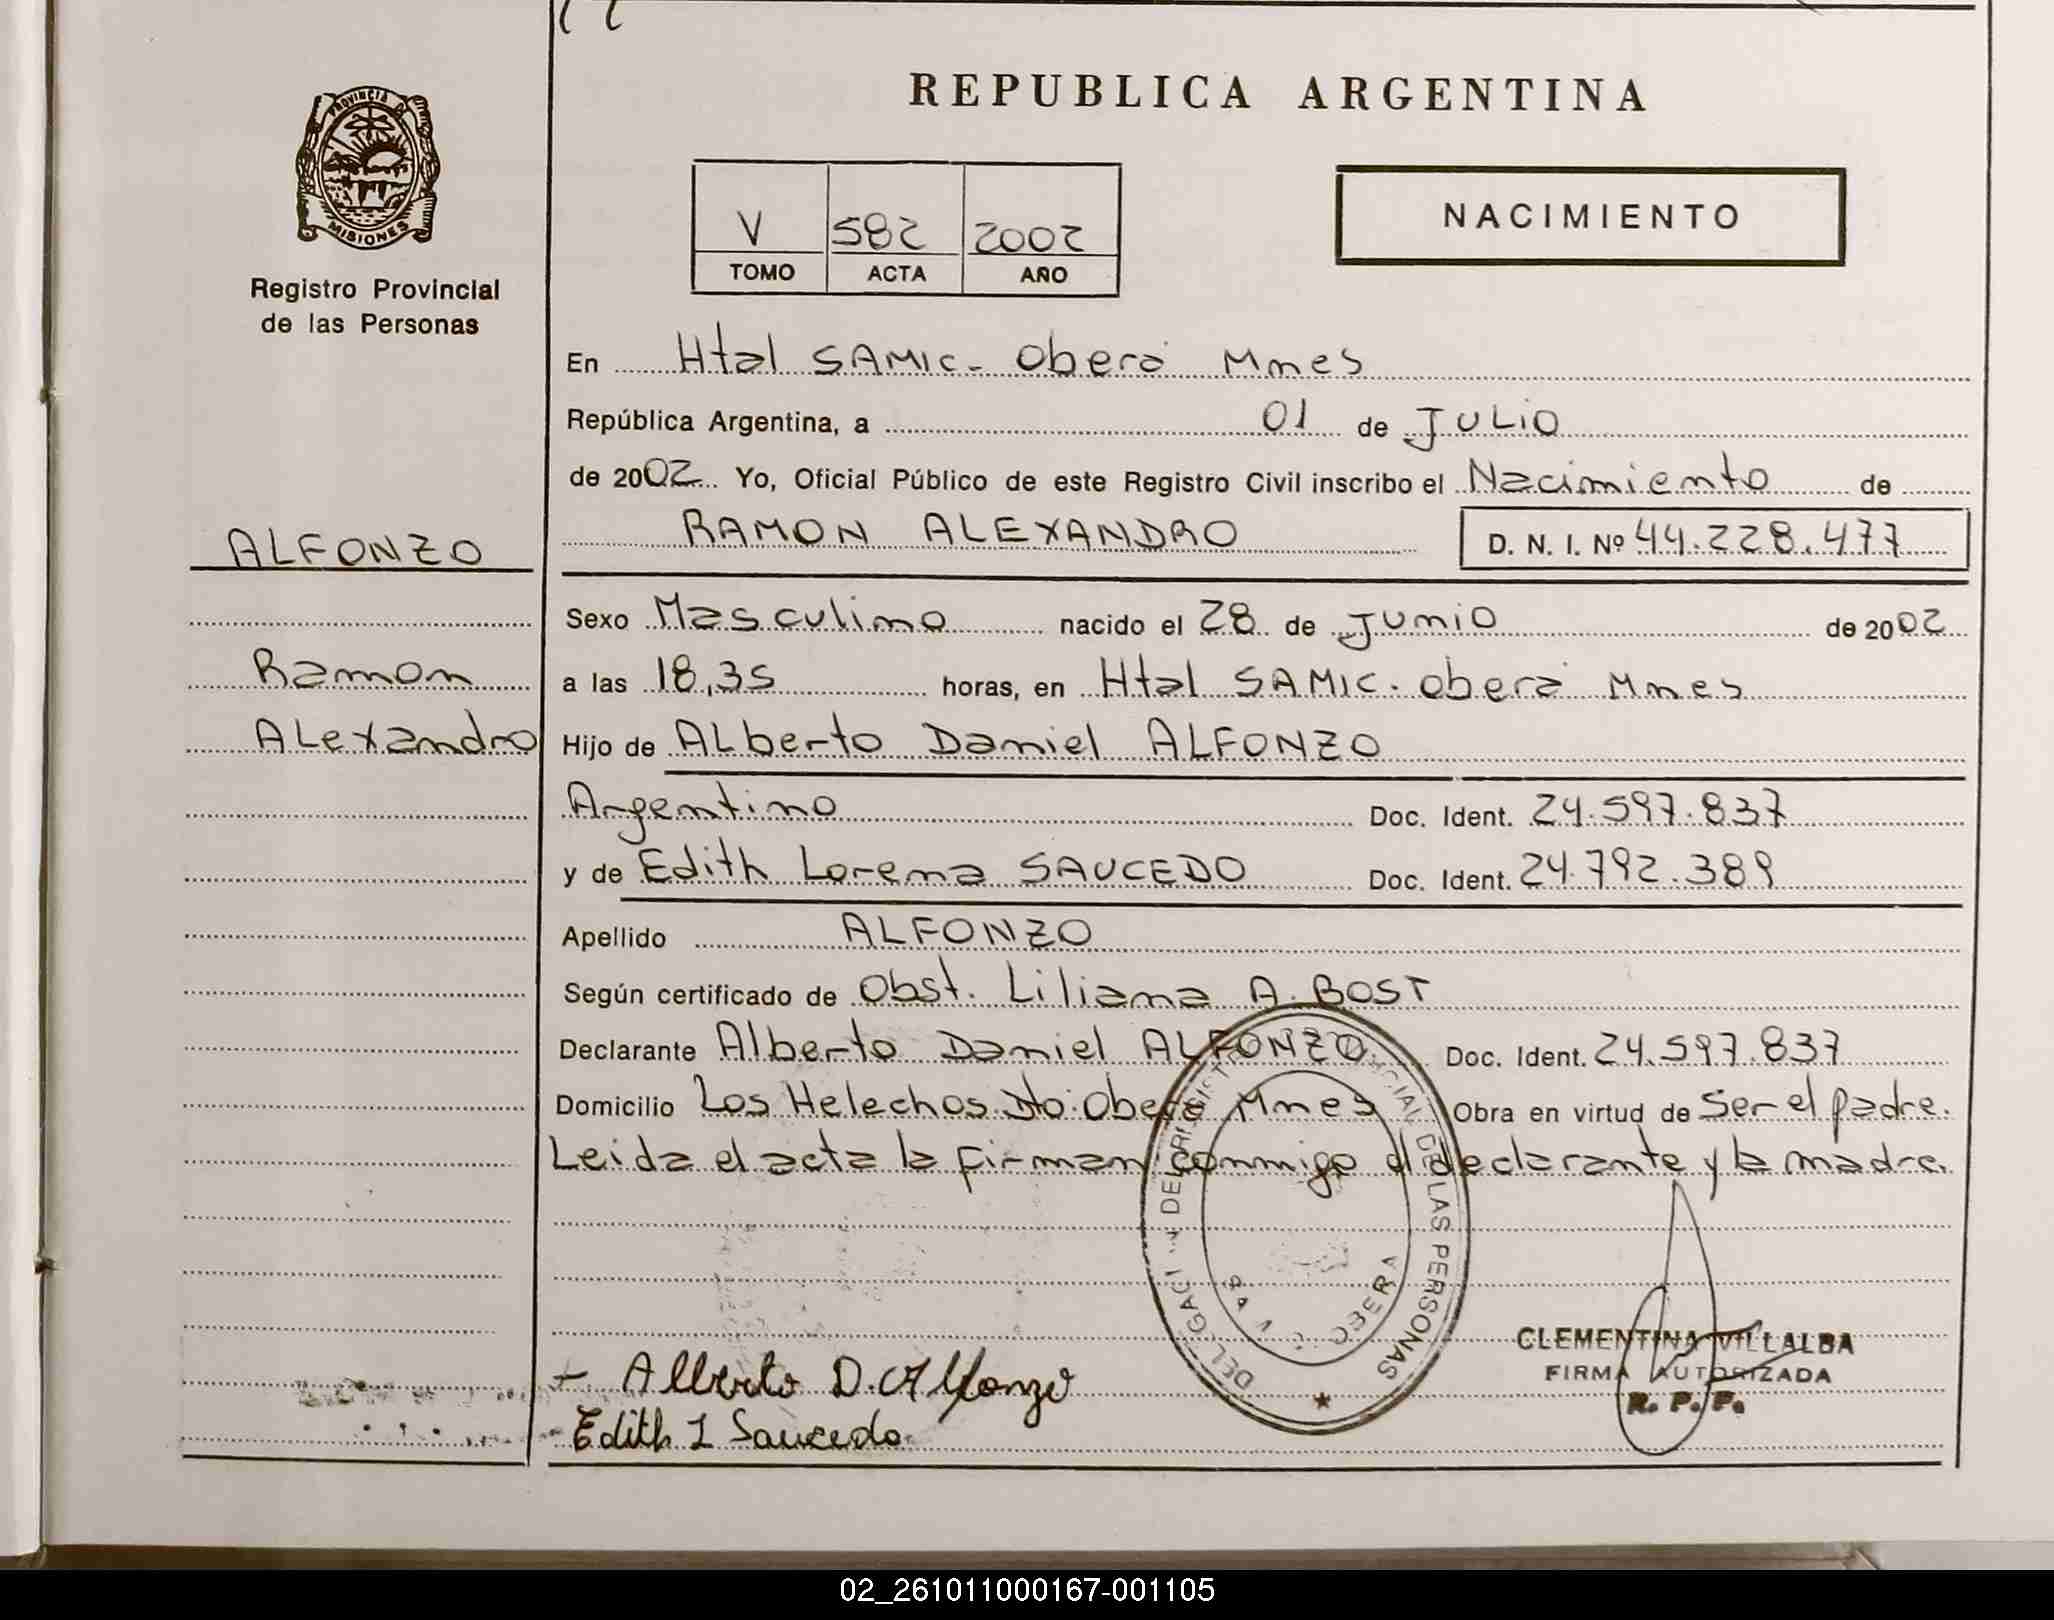 REPUBLICA ARGENTINA
PROVINCIA DE
MISIONES
Registro Provincial
de las Personas
V 582 2002
TOMO ACTA AÑO
NACIMIENTO
En Htal SAMIC - Oberá Mnes
República Argentina, a 01 de JULIO
de 2002 Yo, Oficial Público de este Registro Civil inscribo el Nacimiento de
RAMON ALEXANDRO D. N. I. Nº 44.228.477
ALFONZO
Ramon
Alexandro
Sexo Masculino nacido el 28 de Junio de 2002
a las 18,35 horas, en Htal SAMIC. Oberá Mnes
Hijo de Alberto Daniel ALFONZO
Argentino Doc. Ident. 24.597.837
y de Edith Lorena SAUCEDO Doc. Ident. 24.792.389
Apellido ALFONZO
Según certificado de Obst. Liliana A. BOST
Declarante Alberto Daniel ALFONZO Doc. Ident. 24.597.837
Domicilio Los Helechos Dto. Oberá Mnes Obra en virtud de Ser el padre.
Leida el acta la firman conmigo el declarante y la madre.
DE LAS PERSONAS
CLEMENTINA VILLALBA
FIRMA AUTORIZADA
R. P. P.
Alberto D. Alfonzo
Edith L Saucedo
02_261011000167-001105